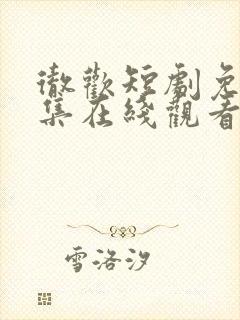 徹歡短劇免
集在綫觀看
雪洛汐